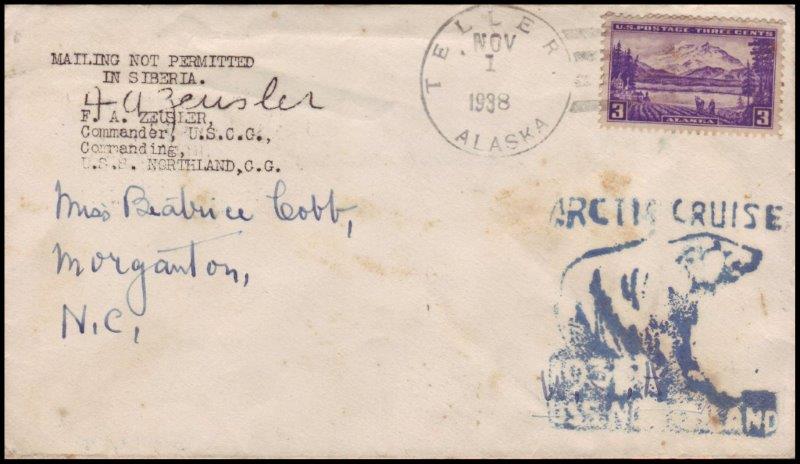 MAILING NOT PERMITTED
IN SIBERIA.
F. A. Zeusler
F. A. ZEUSLER,
Commander, U.S.C.G.,
Commanding,
U.S.S. NORTHLAND,C.G.
TELLER
NOV
1
1938
ALASKA
U.S. POSTAGE THREE CENTS
3
ALASKA
3
Miss Beatrice Cobb,
Morganton,
N.C,
ARCTIC CRUISE
USS NORTHLAND